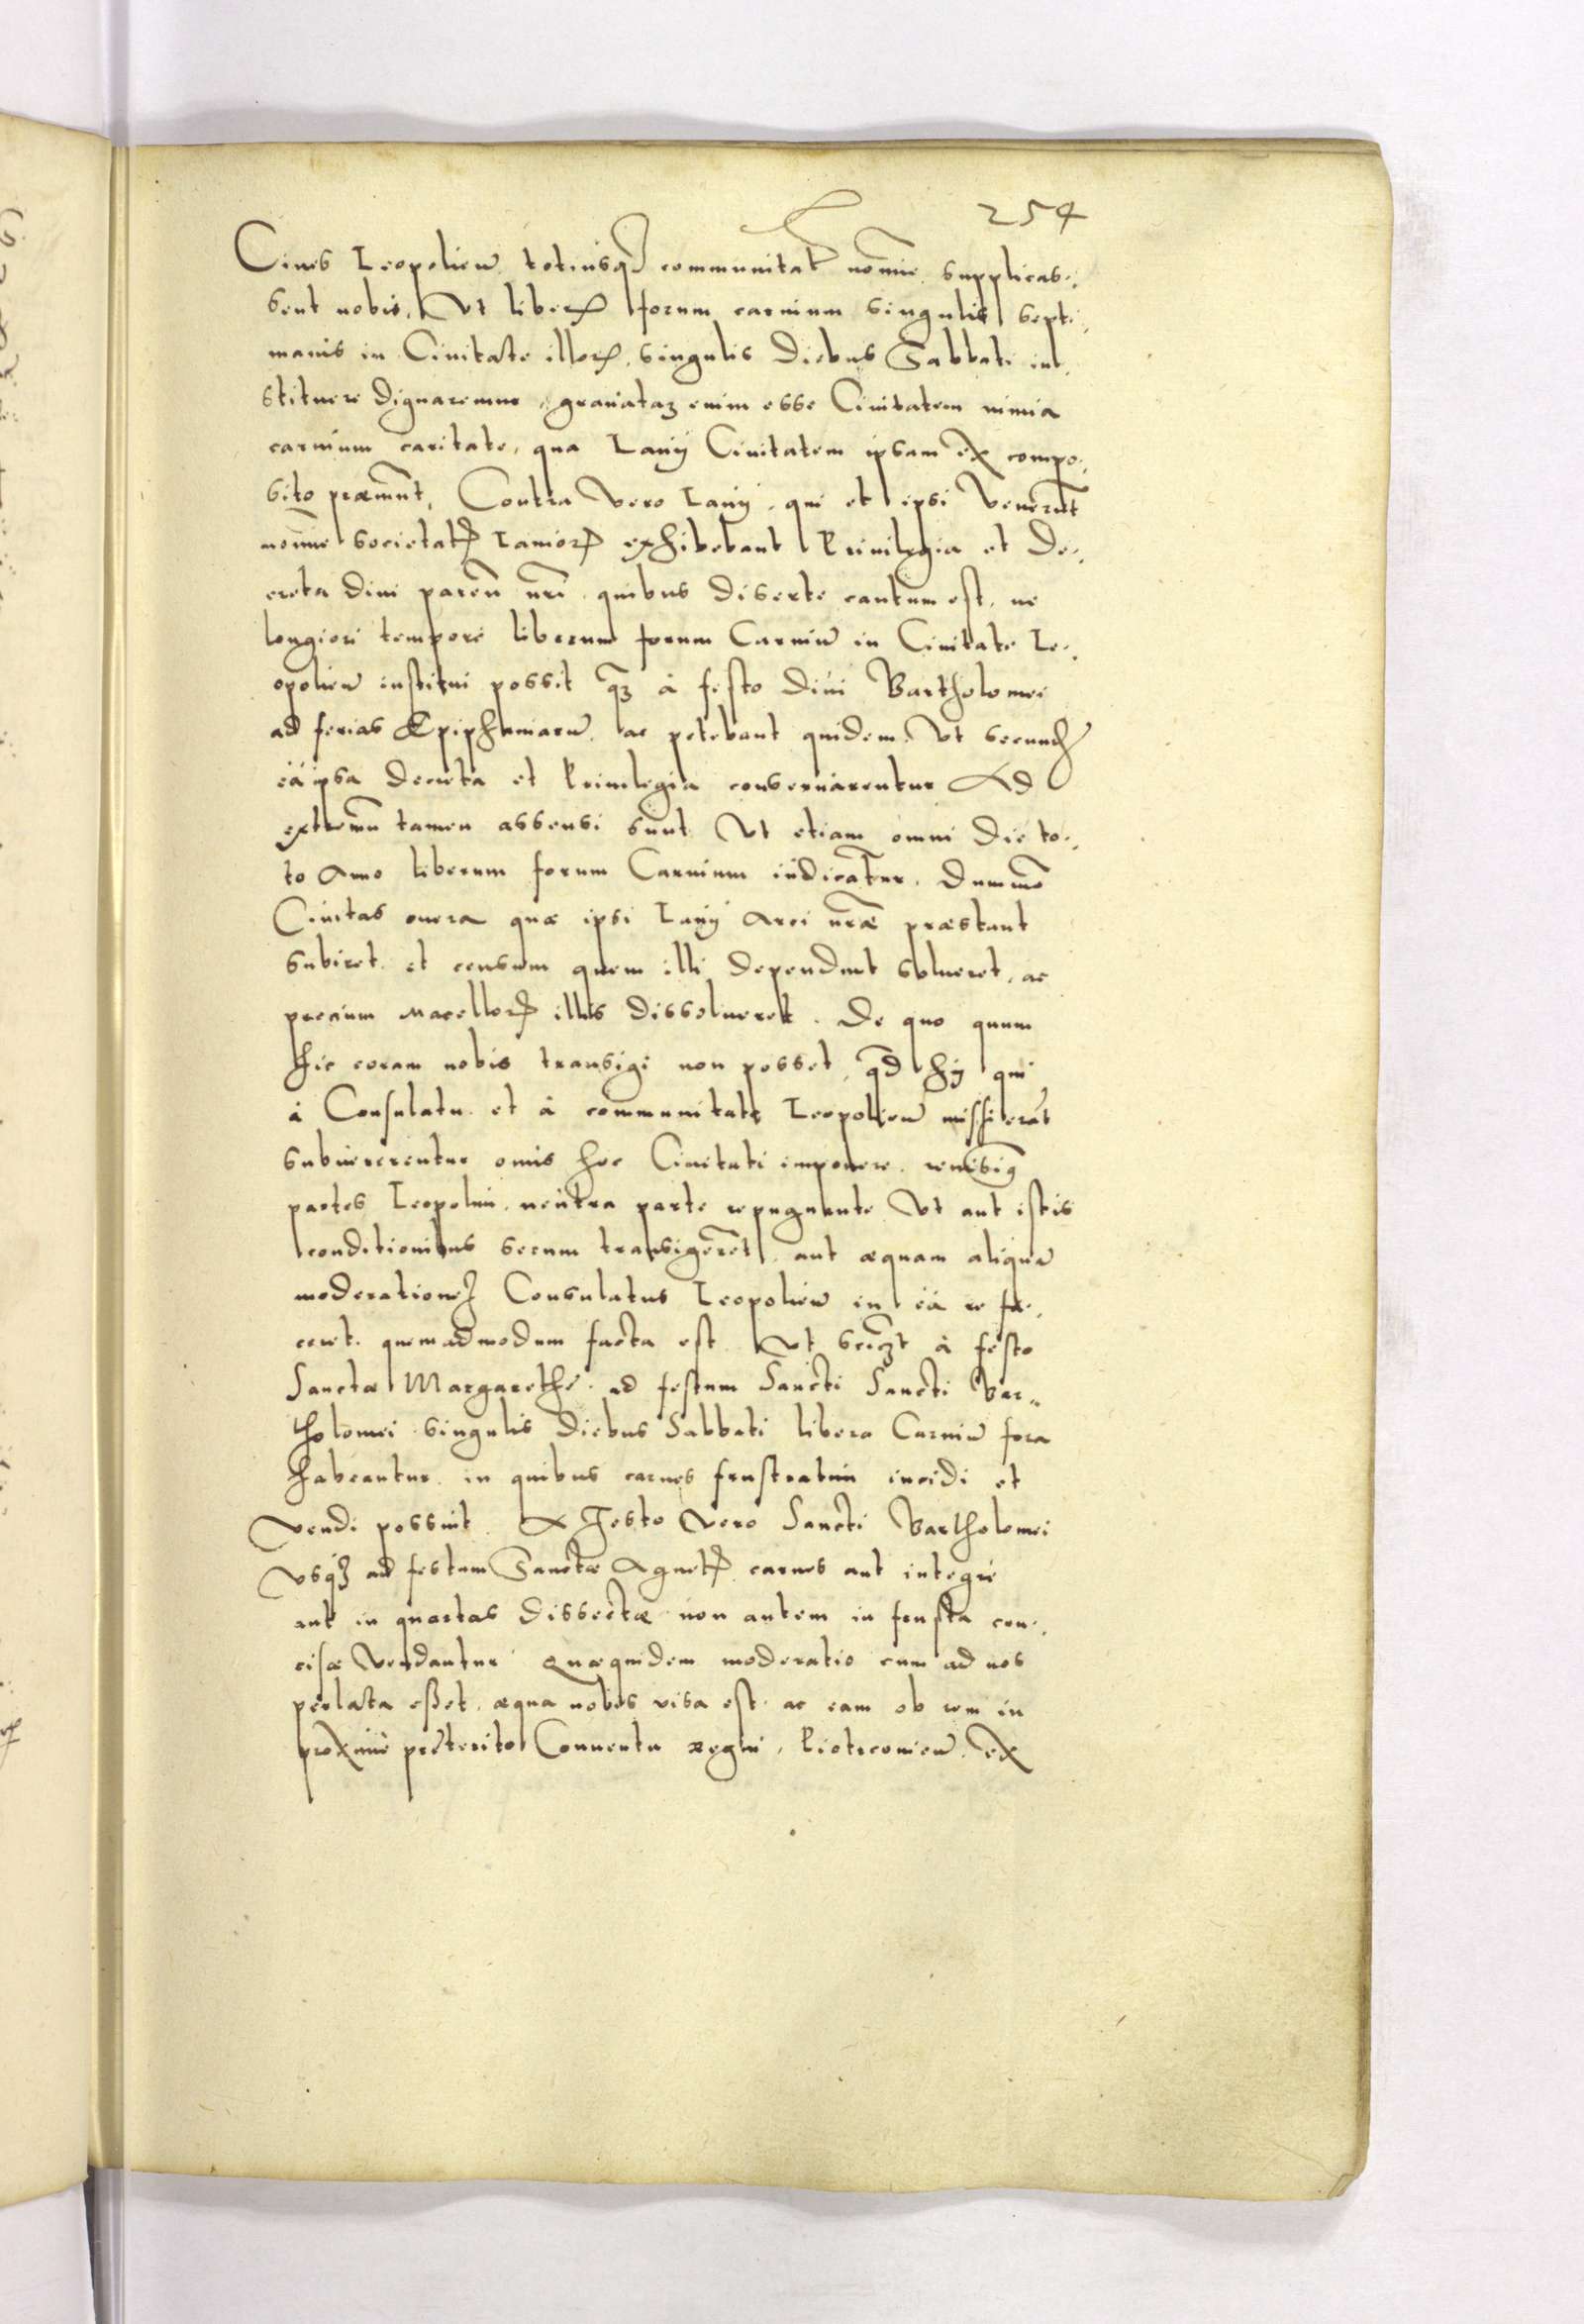 254
Ciues Leopolien̄. totiusq̃ communitat̃ nomīe supplicas-
sent nobis, Vt liberũ forum carnium singulis septi-
manis in Ciuitate illorꝝ singulis diebus Sabbati in-
stituere dignaremur, grauataʒ enim esse Ciuitatem nimia
carnium caritate, qua Lanÿ Ciuitatem ipsam ex compo-
sito præmūt, Contra Vero Lanÿ, qui et ipsi Venerūt
nomīne societatis Laniorꝝ exhibebant Priuilegia et De-
creta diui paren̄ nr̃i quibus diserte cautum est, ne
longiori tempore liberum forum Carniū in Ciuitate Le-
opolien̄ institui possit q̃ʒ à festo diui Bartholomei
ad ferias Epiphaniarū. ac petebant quidem Vt secundũ
ea ipsa decreta et Priuilegia conseruarentur Ad
extremū tamen assensi sunt Vt etiam omni die to-
to Anno liberum forum Carnium indicatur. Dummō
Ciuitas onera quæ ipsi Lanÿ Arci nr̃æ præstant
subiret et censum quem illi dependunt solueret, ac
precium Macellorꝝ illis dissolueret. De quo quum
hic coram nobis transigi non posset, q̃d hÿ qui
à Consulatu et à communitate Leopolien̄ missi erāt
subuererentur onus hoc Ciuitati imponere. remisimꝰ
partes Leopolim, neutra parte repugnante Vt aut istis
conditionibus secum transigerēt, aut æquam aliquā
moderationeʒ Consulatus Leopolien̄ in ea re fa-
ceret. quemadmodum facta est Vt scilicʒt à festo
Sanctæ Margarethe ad festum Sancti Sancti Bar-
tholomei singulis diebus Sabbati libera Carniū fora
habeantur in quibus carnes frustratim incidi et
Vendi possint A Festo Vero Sancti Bartholomei
Vsqʒ ad festum Sanctæ Agnetis carnes aut integre
aut in quartas dissectæ non autem in frusta con-
cisæ Vendantur Quæquidem moderatio cum ad nos
perlata eßet, æqua nobis visa est ac eam ob rem in
proxime preterito Conuentu regni, Piotrconien̄. ex